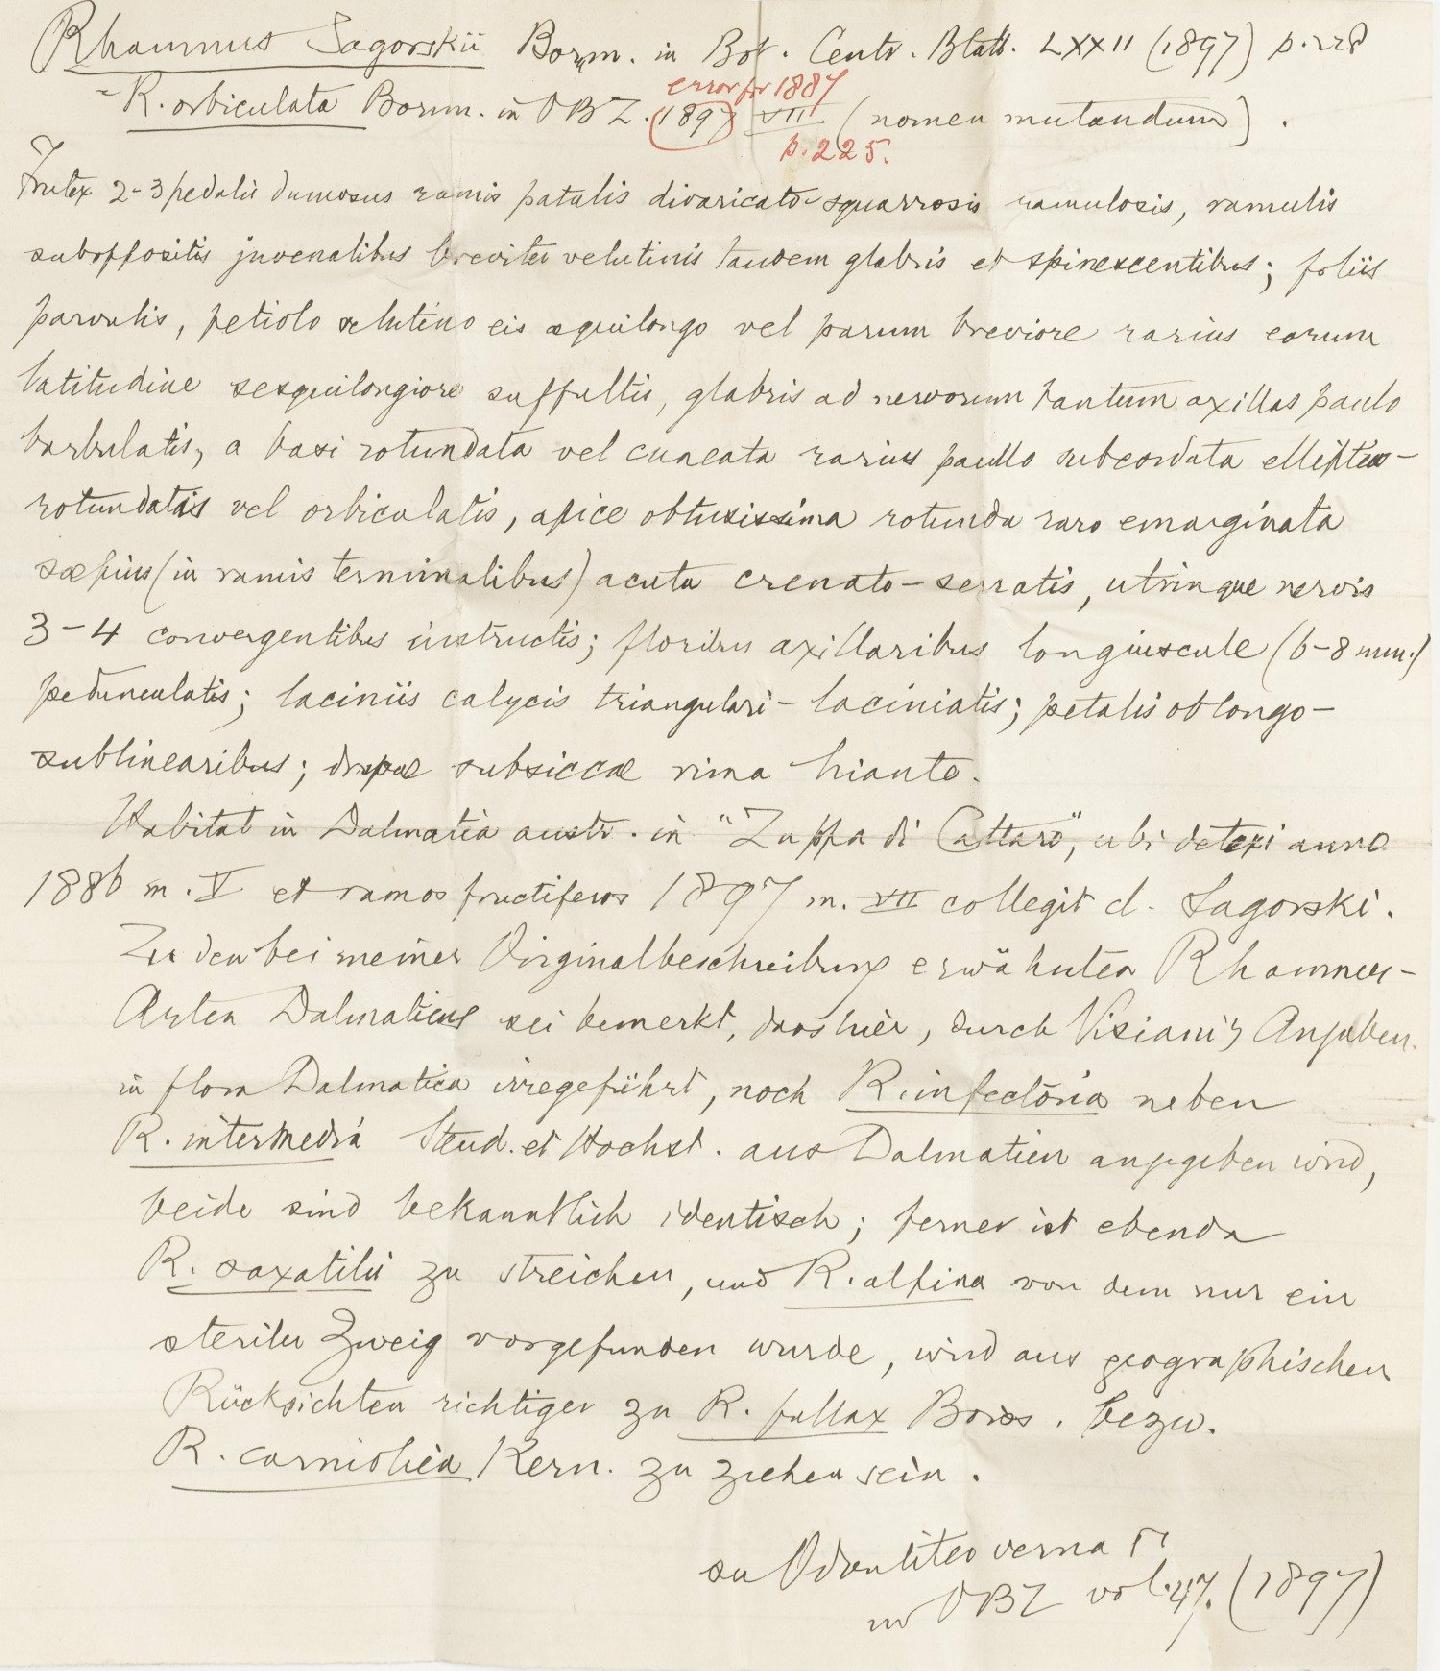 Rhamnus Sagorskii Bornm. in Bot. Centr. Blatt. LXXII (1897) p. 228
= R. orbiculata Bornm. in OBZ. (1897) VII (nomen mutandum).
error for 1887
p. 225.
Frutex 2-3 pedalis dumosus ramis patulis divaricato-squarrosis ramulosis, ramulis
suboppositis juvenalibus breviter velutinis tandem glabris et spinescentibus; foliis
parvulis, petiolo velutino eis æquilongo vel parum breviore rarius earum
latitudine sesquilongiore suffultis, glabris ad nervorum tantum axillas paulo
barbulatis, a basi rotundata vel cuneata rarius paullo subcordata elliptico-
rotundatis vel orbiculatis, apice obtusissima rotunda raro emarginata
sæpius (in ramis terminalibus) acuta crenato-serratis, utrinque nervis
3-4 convergentibus instructis; floribus axillaribus longiuscule (6-8 mm.)
pedunculatis; laciniis calycis triangulari-laciniatis; petalis oblongo-
sublinearibus; drupæ subsiccæ rima hiante.
Habitat in Dalmatia austr. in "Zuppa di Cattaro", ubi detexi anno
1886 m. V et ramos fructiferos 1897 m. VII collegit cl. Sagorski.
Zu den bei meiner Originalbeschreibung erwähnten Rhamnus-
Arten Dalmatiens sei bemerkt, dass hier, durch Visiani's Angaben
in flora Dalmatica irregeführt, noch R. infectoria neben
R. intermedia Steud. et Hochst. aus Dalmatien angegeben wird,
beide sind bekanntlich identisch; ferner ist ebenda
R. saxatilis zu streichen, und R. alpina von dem nur ein
steriler Zweig vorgefunden wurde, wird aus geographischen
Rücksichten richtiger zu R. fallax Boiss. bezw.
R. carniolica Kern. zu ziehen sein.
su Odontites verna
in OBZ vol. 47. (1897)